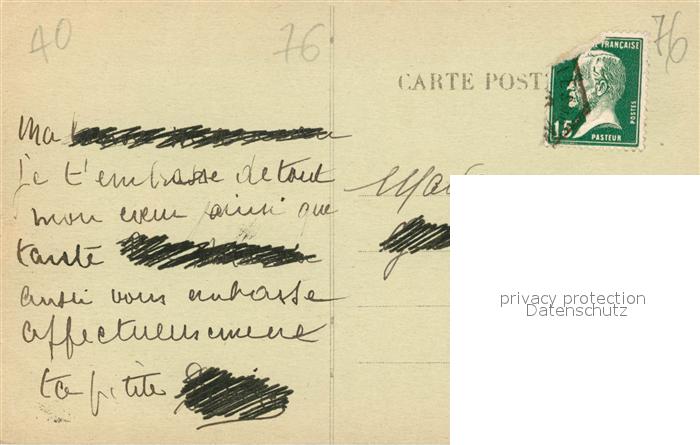 40
76
76
CARTE POST
RÉPUBLIQUE FRANÇAISE
15
POSTES
PASTEUR
Ma
Je t'embrasse de tout
mon cœur ainsi que
tante
aussi vous embrasse
affectueusement
ta ptite
privacy protection
Datenschutz